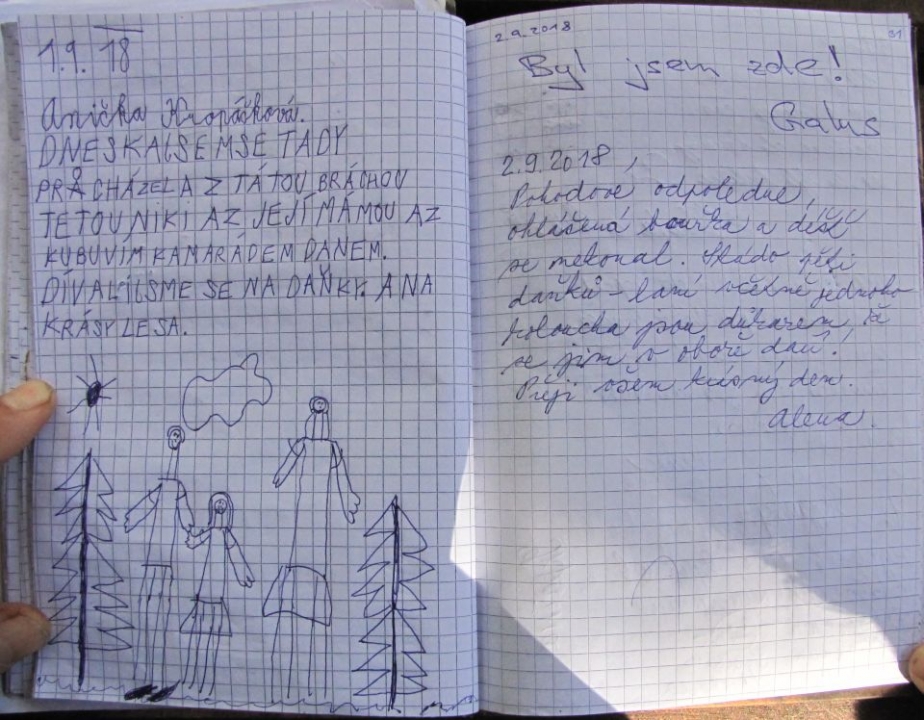 1.9. 18
Anička Kropáčková.
DNESKA JSEMSE TADY
PRŮCHÁZELA Z TÁTOU BRÁCHOU
TETOU NIKI A Z JEJÍ MÁMOU A Z
KUBUVÍM KAMARÁDEM DANEM.
DÍVALI JSME SE NA DAŇKY. A NA
KRÁSY LESA.
2.9.2018
31
Byl jsem zde!
Galus
2.9.2018,
Pohodové odpoledne,
ohlášená bouřka a déšť
se nekonal. Stádo pěti
daňků - laní včetně jednoho
koloucha jsou důkazem, že
se jim v oboře daří!
Přeji všem krásný den.
Alena.